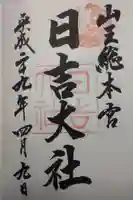 山王総本宮
日吉大社
平成二十九年四月九日